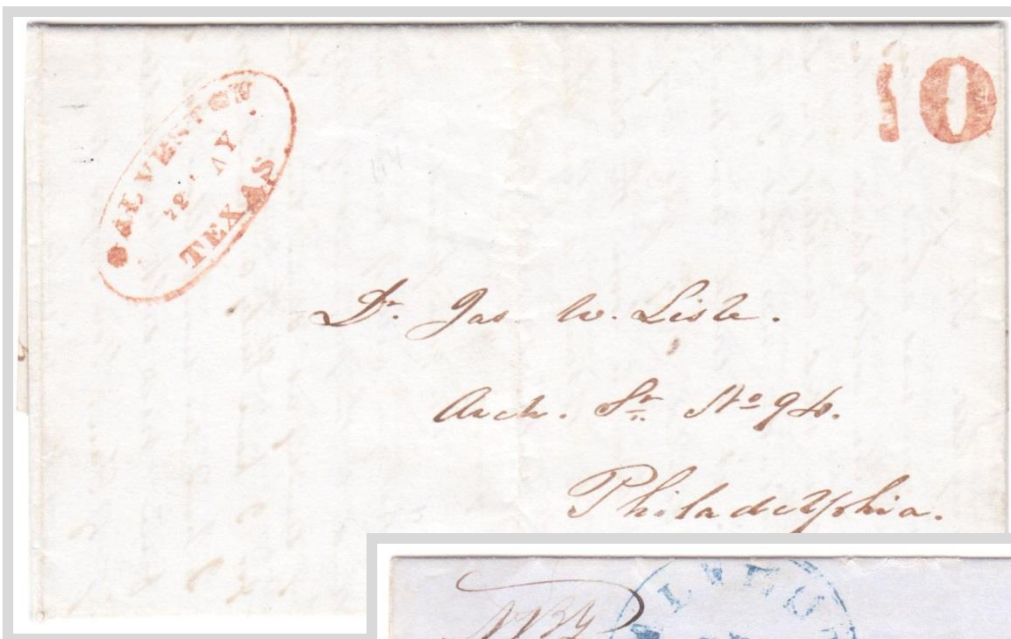 GALVESTON
MAY
TEXAS
10
Dr. Jas. W. Lisle.
Arch. St. No 96.
Philadelphia.